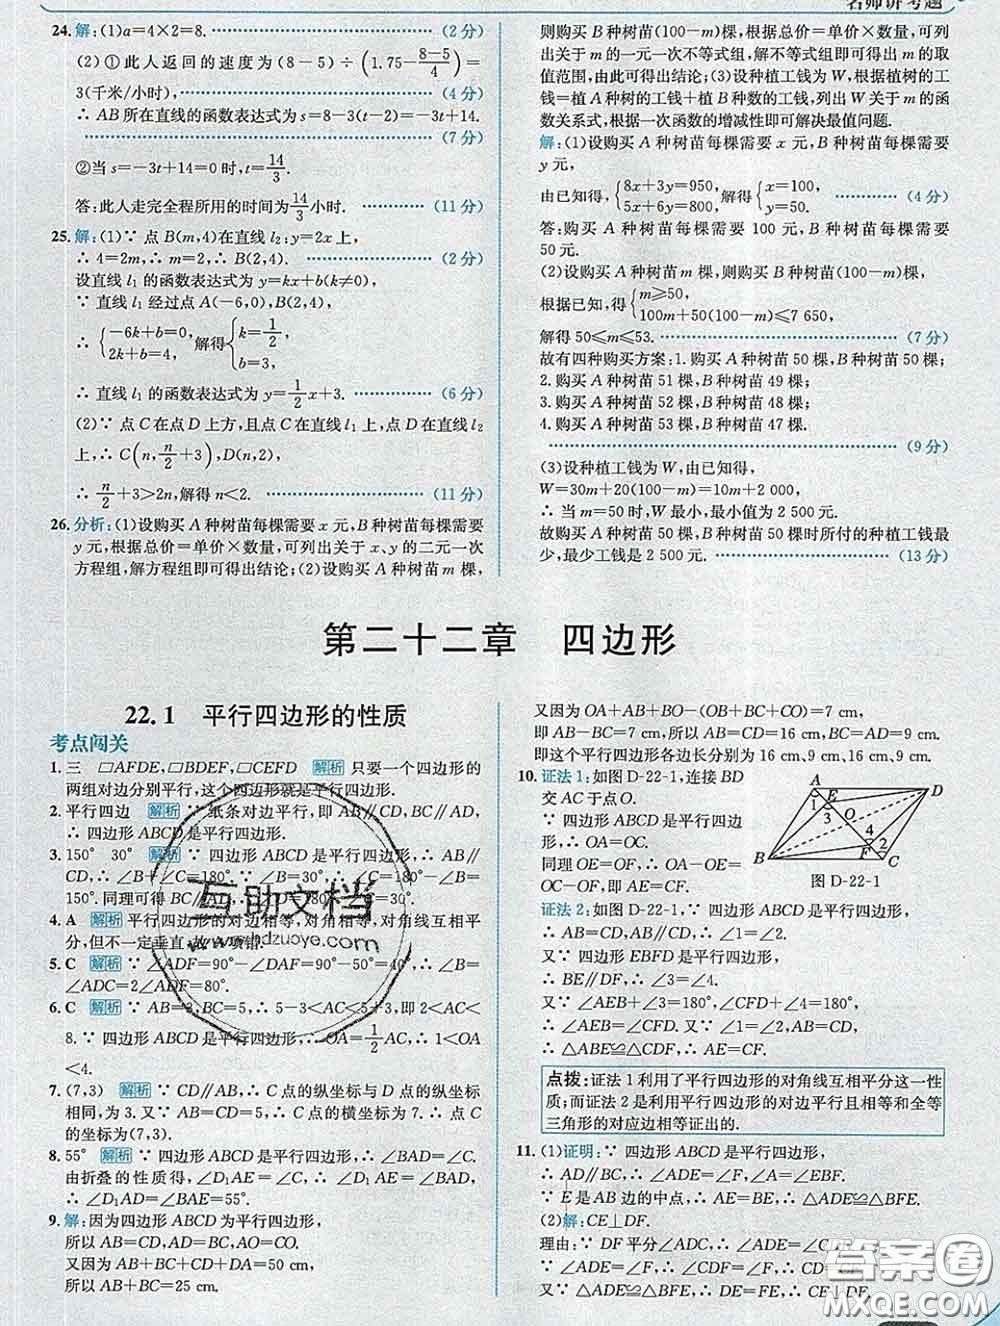 名师讲考题
24. 解:(1)a=4×2=8. (2分)
(2)①此人返回的速度为(8-5)÷(1.75-(8-5)/4)=
3(千米/小时), (4分)
∴ AB所在直线的函数表达式为s=8-3(t-2)=-3t+14.
(7分)
②当s=-3t+14=0时,t=14/3.
答:此人走完全程所用的时间为14/3小时. (11分)
25. 解:(1)∵ 点B(m,4)在直线l₂:y=2x上,
∴ 4=2m,∴ m=2,∴ B(2,4). (2分)
设直线l₁的函数表达式为y=kx+b(k≠0).
∵ 直线l₁经过点A(-6,0),B(2,4),
∴ {-6k+b=0, 2k+b=4, 解得{k=1/2, b=3.
∴ 直线l₁的函数表达式为y=1/2x+3. (6分)
(2)∵ 点C在点D上方,且点C在直线l₁上,点D在直线l₂
上,∴ C(n,n/2+3),D(n,2n),
∴ n/2+3>2n,解得n<2. (11分)
26. 分析:(1)设购买A种树苗每棵需要x元,B种树苗每棵需要
y元,根据总价=单价×数量,可列出关于x,y的二元一次
方程组,解方程组即可得出结论;(2)设购买A种树苗m棵,
则购买B种树苗(100-m)棵,根据总价=单价×数量,可列
出关于m的一元一次不等式组,解不等式组即可得出m的取
值范围,由此可得出结论;(3)设种植工钱为W,根据植树的工
钱=植A种树的工钱+植B种数的工钱,列出W关于m的
函数关系式,根据一次函数的增减性即可解决最值问题.
解:(1)设购买A种树苗每棵需要x元,B种树苗每棵需要
y元,
由已知得,{8x+3y=950, 5x+6y=800, 解得{x=100, y=50. (4分)
答:购买A种树苗每棵需要100元,B种树苗每棵需要
50元.
(2)设购买A种树苗m棵,则购买B种树苗(100-m)棵,
根据已知,得{m≥50, 100m+50(100-m)≤7 650,
解得50≤m≤53. (7分)
故有四种购买方案:1.购买A种树苗50棵,B种树苗50棵;
2.购买A种树苗51棵,B种树苗49棵;
3.购买A种树苗52棵,B种树苗48棵;
4.购买A种树苗53棵,B种树苗47棵.
(9分)
(3)设种植工钱为W,由已知得,
W=30m+20(100-m)=10m+2 000,
∴ 当m=50时,W最小,最小值为2 500元.
故购买A种树苗50棵、B种树苗50棵时所付的种植工钱最
少,最少工钱是2 500元. (13分)
第二十二章 四边形
22.1 平行四边形的性质
考点闯关
1. 三 ▱AFDE,▱BDEF,▱CEFD 解析 只要一个四边形的
两组对边分别平行,这个四边形就是平行四边形.
2. 平行四边 解析 ∵ 纸条对边平行,即AB∥CD,BC∥AD,
∴ 四边形ABCD是平行四边形.
3. 150° 30° 解析 ∵ 四边形ABCD是平行四边形,∴ AB∥
CD,∴ ∠B+∠C=180°.∵ ∠B=30°,∴ ∠C=180°-30°=
150°.同理可得BC∥AD,∴ ∠D=180°-150°=30°.
4. A 解析 平行四边形的对边相等,对角相等,对角线互相平
分,但不一定垂直,故A项错.
5. C 解析 ∵ ∠ADF=90°-∠DAF=90°-50°=40°,∴ ∠B=
∠ADC=2∠ADF=80°.
6. C 解析 ∵ AB=3,BC=5,∴ 5-3<AC<5+3,即2<AC<
8.∵ 四边形ABCD是平行四边形,∴ OA=1/2AC,∴ 1<OA
<4.
7. (7,3) 解析 ∵ CD∥AB,∴ C点的纵坐标与D点的纵坐标
相同,为3.又∵ CD=AB=5,∴ C点的横坐标为7.∴ 点C
的坐标为(7,3).
8. 55° 解析 ∵ 四边形ABCD是平行四边形,∴ ∠BAD=∠C.
由折叠的性质得,∠D₁AE=∠C,∴ ∠D₁AE=∠BAD,
∴ ∠D₁AD=∠BAE=55°.
9. 解:因为四边形ABCD为平行四边形,
所以AB=CD,AD=BC,AO=CO.
又因为AB+BC+CD+DA=50 cm,
所以AB+BC=25 cm.
又因为OA+AB+BO-(OA+BC+OB)=7 cm,
即AB-BC=7 cm,所以AB=CD=16 cm,BC=AD=9 cm.
即这个平行四边形各边长分别为16 cm、9 cm、16 cm、9 cm.
10. 证法1:如图D-22-1,连接BD
交AC于点O.
∵ 四边形ABCD是平行四边
形,∴ OA=OC.
同理OE=OF,∴ OA-OE=
OC-OF,即AE=CF.
A E D 1 3 O 4 2 B F C
图D-22-1
证法2:如图D-22-1,∵ 四边形ABCD是平行四边形,
∴ AB=CD,AB∥CD,∴ ∠1=∠2.
又∵ 四边形EBFD是平行四边形,
∴ BE∥DF,∴ ∠3=∠4.
又∵ ∠AEB+∠3=180°,∠CFD+∠4=180°,
∴ ∠AEB=∠CFD.又∵ ∠1=∠2,AB=CD,
∴ △ABE≌△CDF,∴ AE=CF.
点拨:证法1利用了平行四边形的对角线互相平分这一性
质;而证法2是利用平行四边形的对边平行且相等和全等
三角形的对应边相等证出的.
11. (1)证明:∵ 四边形ABCD是平行四边形,
∴ AD∥BC,∴ ∠ADE=∠F,∠A=∠EBF.
∵ E是AB的中点,∴ AE=BE,∴ △ADE≌△BFE.
(2)解:CE⊥DF.
理由:∵ DF平分∠ADC,∴ ∠ADE=∠CDE.
∵ ∠ADE=∠F,∴ ∠CDE=∠F,∴ CD=CF.
∵ △ADE≌△BFE,∴ DE=FE,∴ CE⊥DF.
互助文档
www.hdzuoye.com
答案圈
MXQE.COM